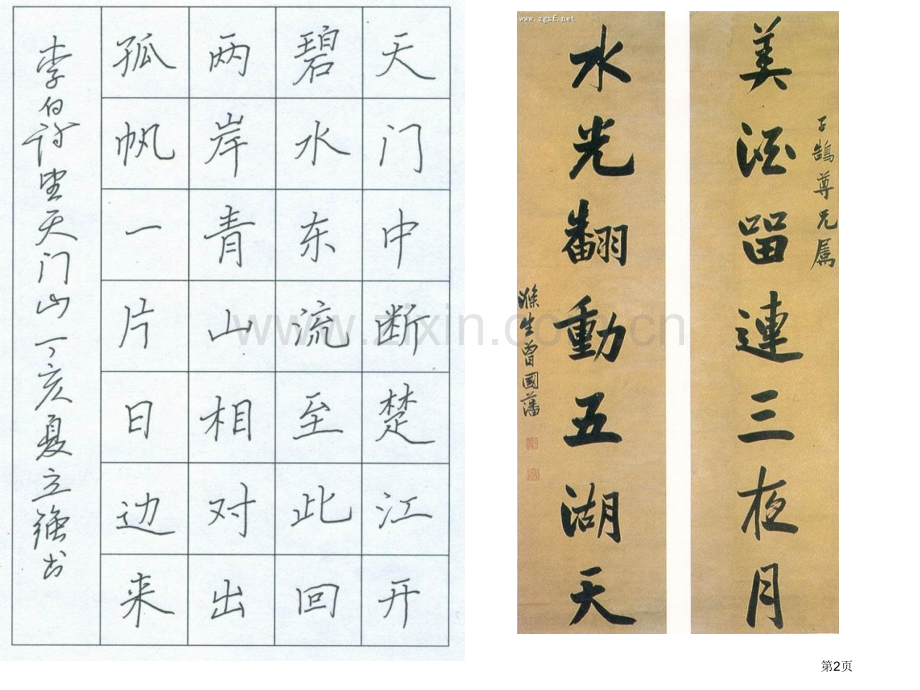 天门中断楚江开
碧水东流至此回
两岸青山相对出
孤帆一片日边来
李白诗望天门山丁亥夏立强书
www.zgsf.net
子鹤尊兄属
美酒留連三夜月
水光翻動五湖天
滌生曾國藩
www.zixin.com.cn
第2页